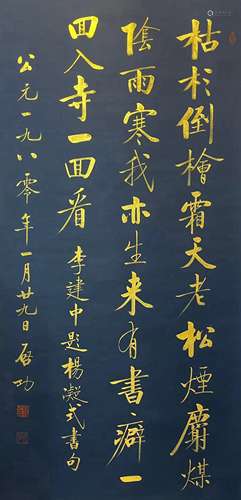 枯杉倒檜霜天老松煙麝煤
陰雨寒我亦生来有書癖一
回入寺一回看 李建中题楊凝式書句
公元一九八零年一月廿九日 启功